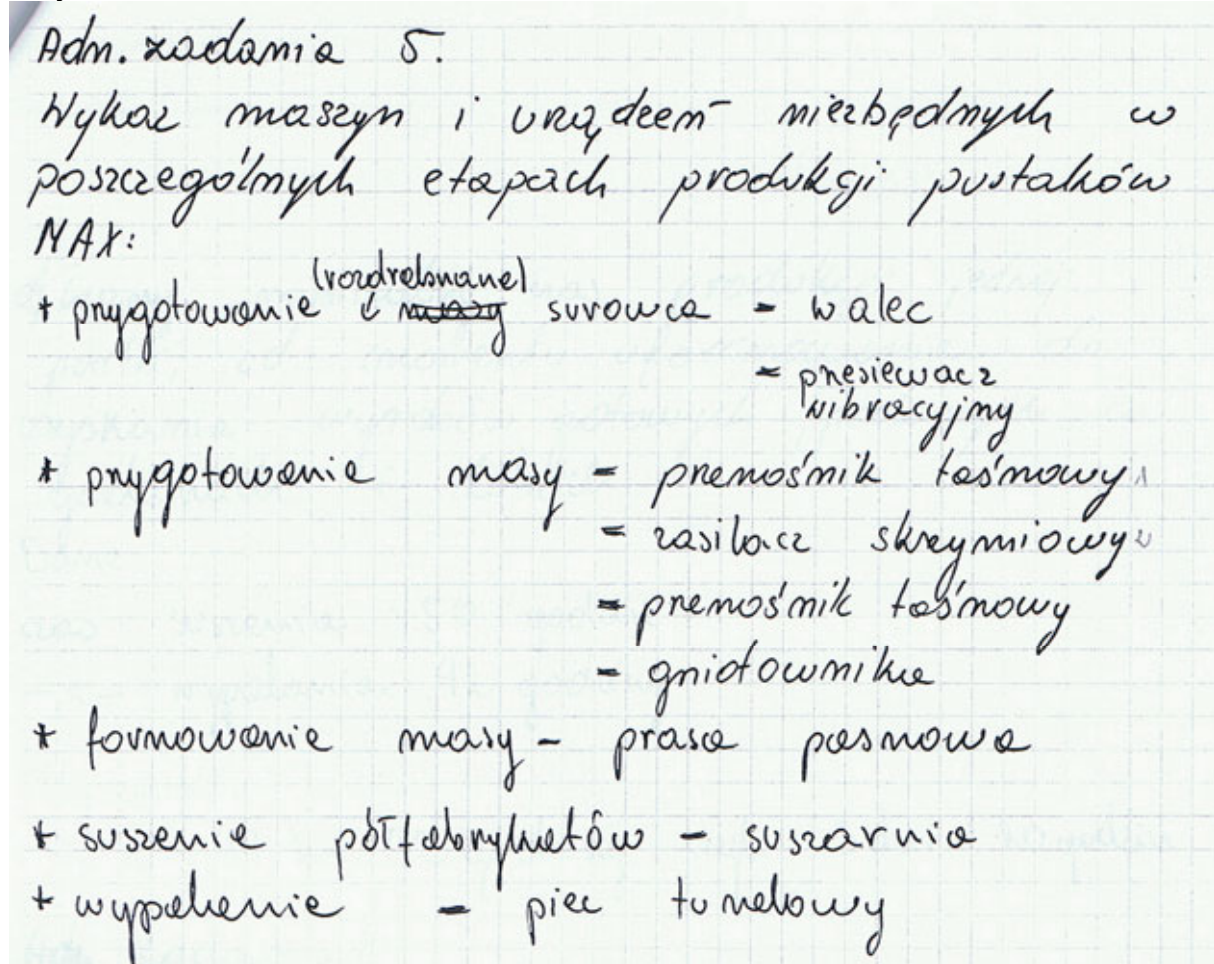 Adn. zadania 5.
Wykaz maszyn i urządzeń niezbędnych w
poszczególnych etapach produkcji pustaków
MAX:
(rozdrabnianie)
* przygotowanie i masy surowca - walec
- przesiewacz
wibracyjny
* przygotowanie masy - przenośnik taśmowy 1
- zasilacz skrzyniowy 2
- przenośnik taśmowy
- gniotownika
* formowanie masy - prasa pasmowa
* suszenie półfabrykatów - suszarnia
* wypalanie - piec tunelowy